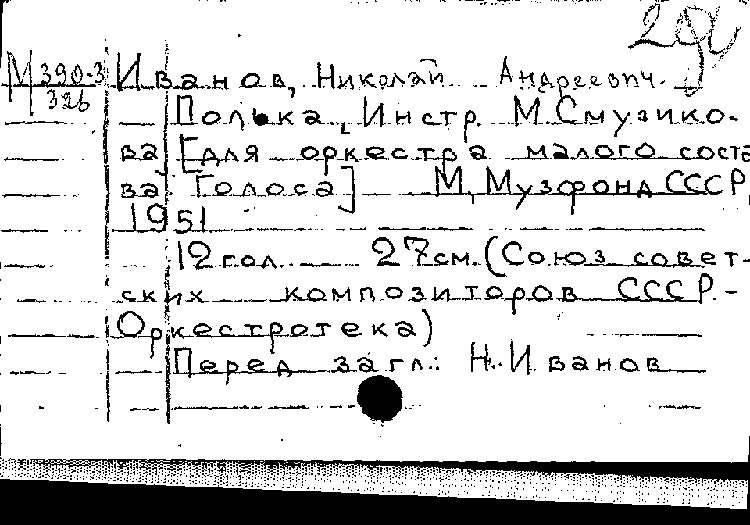 М 390-3
326
Иванов, Николай Андреевич.
Полька, Инстр. М. Смузико-
ва [для оркестра малого соста
ва. Голоса] М, Музфонд СССР,
1951
12 гол. 27 см. (Союз совет-
ских композиторов СССР.-
Оркестротека)
Перед загл.: Н. Иванов